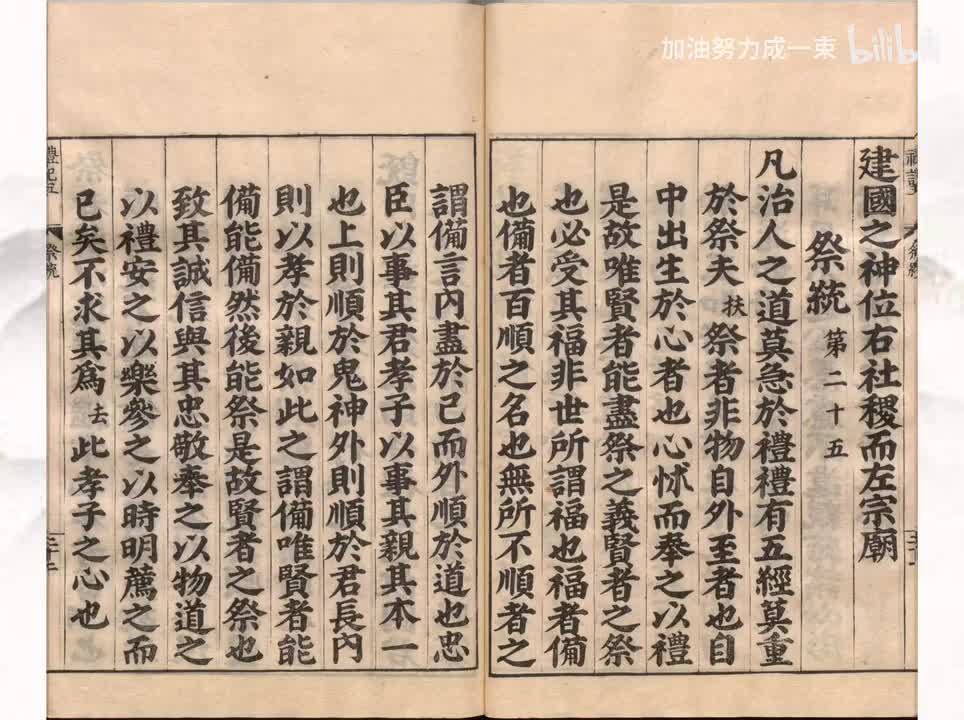 加油努力成一束 bilibili
建國之神位右社稷而左宗廟
祭統 第二十五
凡治人之道莫急於禮禮有五經莫重
於祭夫扶祭者非物自外至者也自
中出生於心者也心怵而奉之以禮
是故唯賢者能盡祭之義賢者之祭
也必受其福非世所謂福也福者備
也備者百順之名也無所不順者之
謂備言內盡於己而外順於道也忠
臣以事其君孝子以事其親其本一
也上則順於鬼神外則順於君長內
則以孝於親如此之謂備唯賢者能
備能備然後能祭是故賢者之祭也
致其誠信與其忠敬奉之以物道之
以禮安之以樂參之以時明薦之而
已矣不求其爲去此孝子之心也
祭統